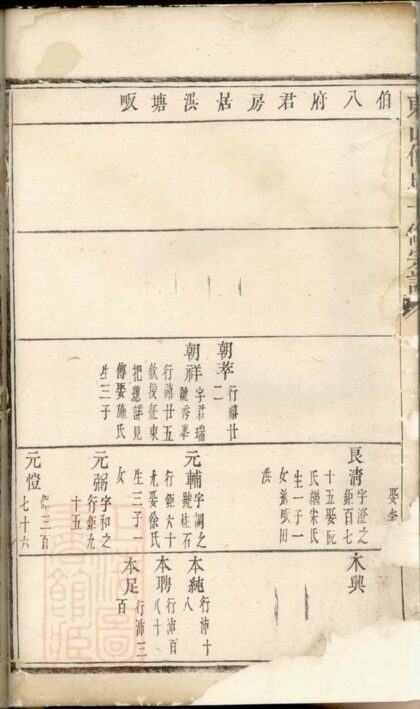 伯八府君房居㳰塘畈
朝萃
行禧廿
二
朝祥
字君瑞
號秀峯
行禧廿五
欽授征東
把總詳見
傳娶施氏
生三子
娶李
良清
字澄之
鉅百七
十五娶阮
氏繼宋氏
生一子一
女
元輔
字調之
號柱石
行鉅六十
九娶徐氏
生三子一
女
元弼
字和之
行鉅九
十五
元愷
鉅三百
七十六
永興
本純
行沛十
八
本聘
行沛百
八十
本足
行沛三
百